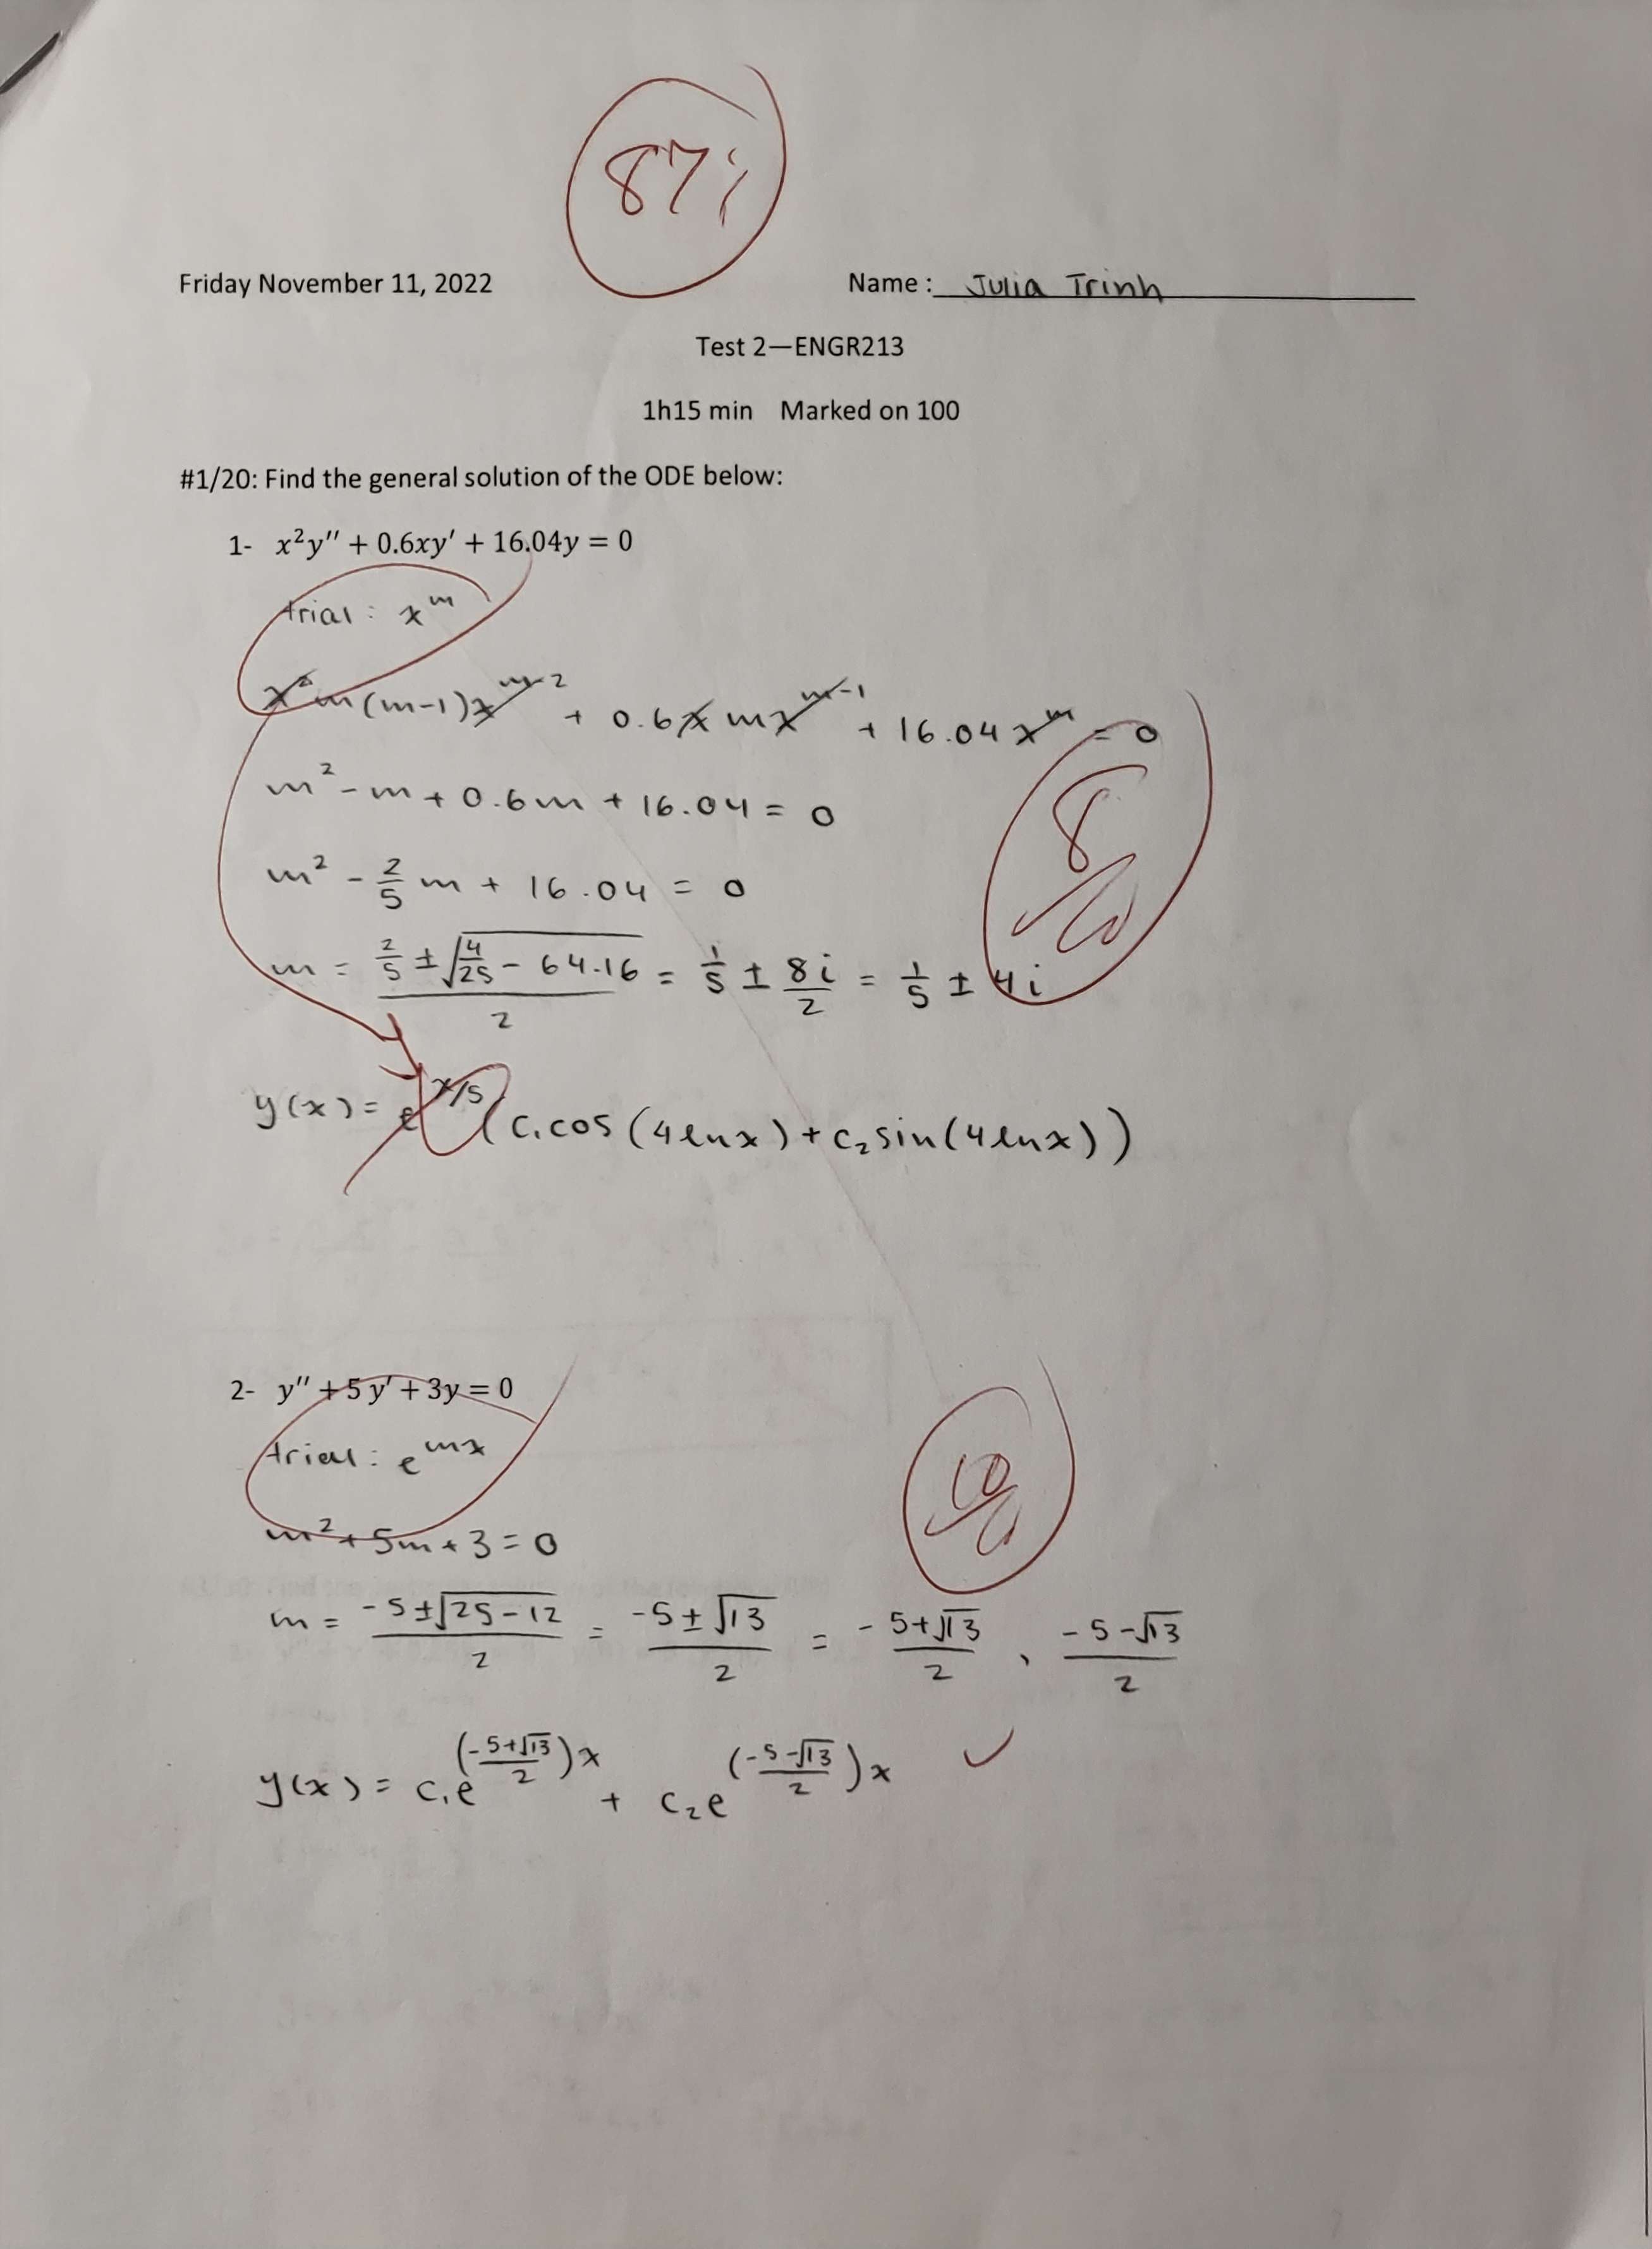 87%
Friday November 11, 2022 Name : Julia Trinh
Test 2—ENGR213
1h15 min Marked on 100
#1/20: Find the general solution of the ODE below:
1- x²y″ + 0.6xy′ + 16.04y = 0
trial : x^m
x²m(m-1)x^(m-2) + 0.6xmx^(m-1) + 16.04x^m = 0
m² - m + 0.6m + 16.04 = 0
8/10
m² - 2/5 m + 16.04 = 0
m = (2/5 ± √(4/25 - 64.16))/2 = 1/5 ± 8i/2 = 1/5 ± 4i
y(x) = e^(x/5) (c₁cos(4lnx) + c₂sin(4lnx))
2- y″ + 5y′ + 3y = 0
trial : e^(mx)
10/10
m² + 5m + 3 = 0
m = (-5±√(25-12))/2 = (-5±√13)/2 = (-5+√13)/2 , (-5-√13)/2
y(x) = c₁e^((-5+√13)/2)x + c₂e^((-5-√13)/2)x ✓